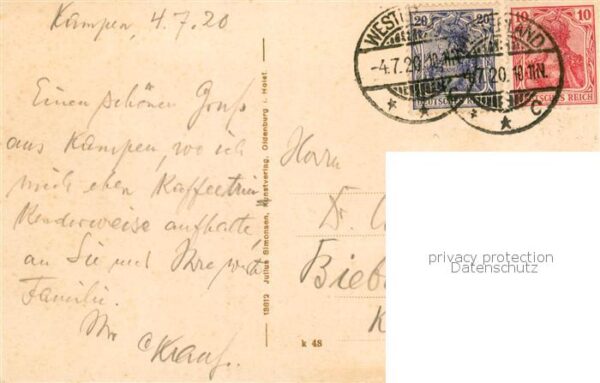 Kampen, 4.7.20
Einen schönen Gruß
aus Kampen, wo ich
mich eben Kaffeetrin
kenderweise aufhalte,
an Sie und Ihre werte
Familie.
Ihr
18812 Julius Simonsen, Kunstverlag, Oldenburg i. Holst.
k 48
20 20
DEUTSCHES REICH
10 10
DEUTSCHES REICH
WESTERLAND
-4.7.20.10-11.N.
4.7.20.10-11.N.
C
Herrn
Dr.
Bieb
privacy protection
Datenschutz